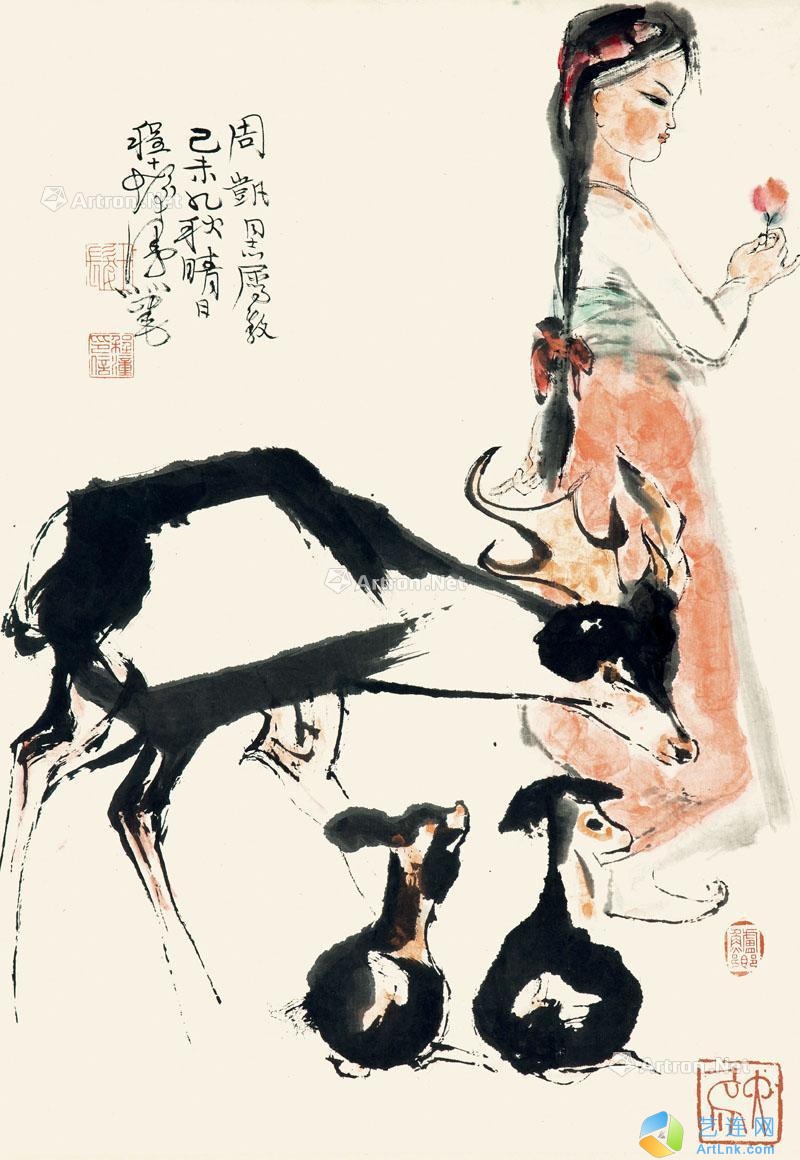 周凯同志属教
己未九秋晴日
程十髮漫筆
程潼
印信
Artron.Net
Artron.Net
Artron.Net
艺连网
ArtLnk.com